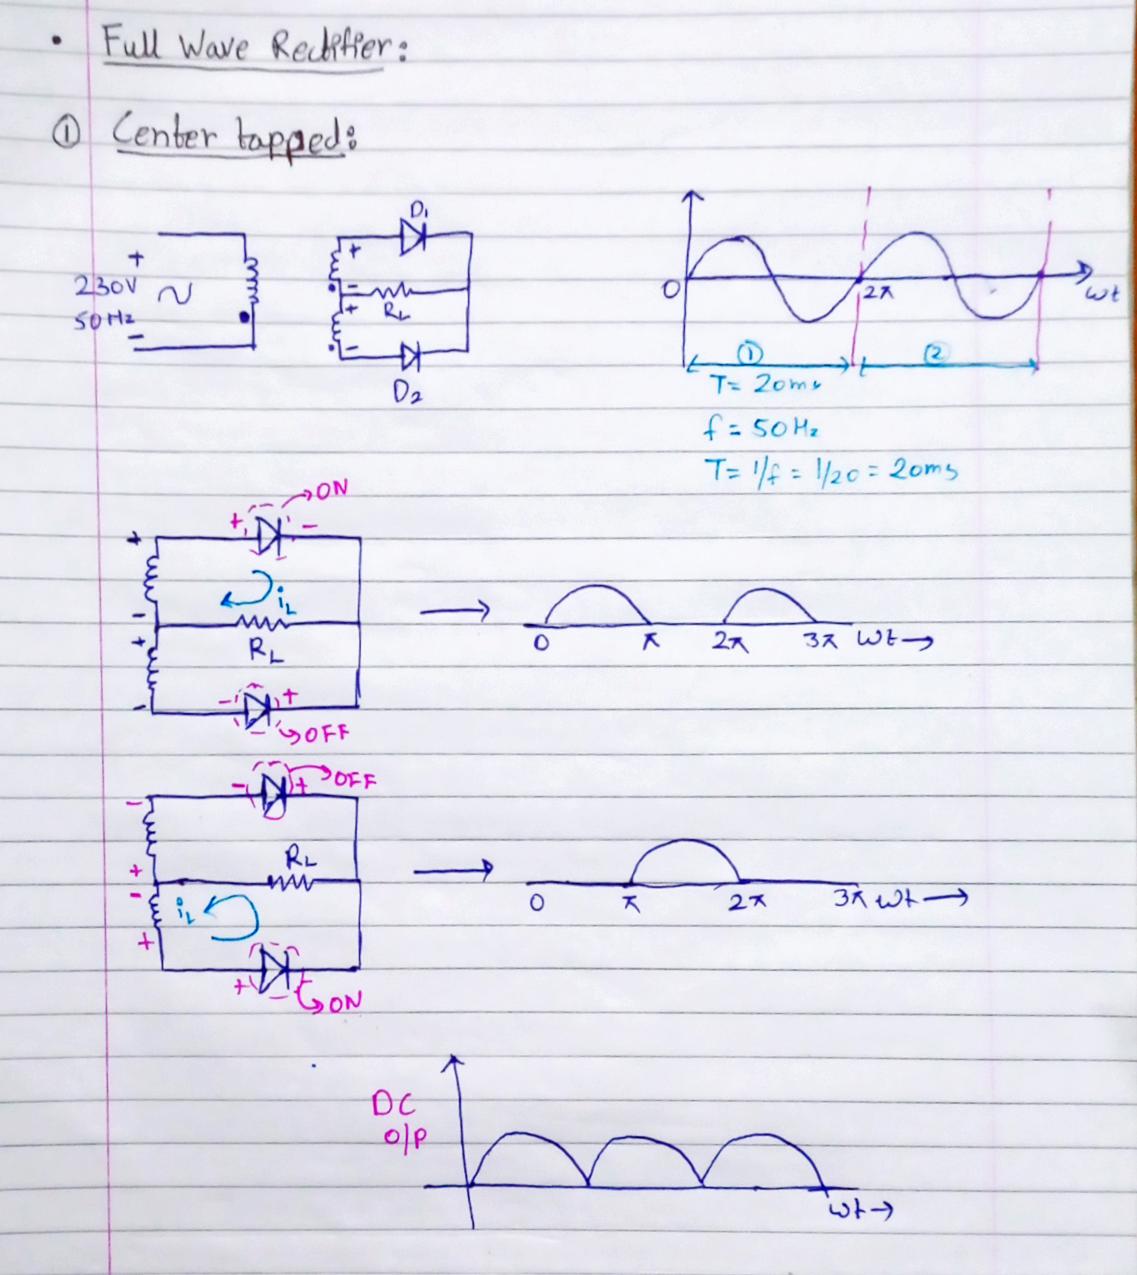 • Full Wave Rectifier:
① Center tapped:
D1
+
230V
50Hz
-
+
-
RL
+
-
D2
0
2π
ωt
① ②
T= 20ms
f = 50Hz
T= 1/f = 1/20 = 20ms
→ON
+ -
+
iL
-
+
RL
0 π 2π 3π ωt→
- +
-
→OFF
→OFF
- +
-
RL
+
-
iL
0 π 2π 3π ωt→
+
+
→ON
DC
O/P
ωt→